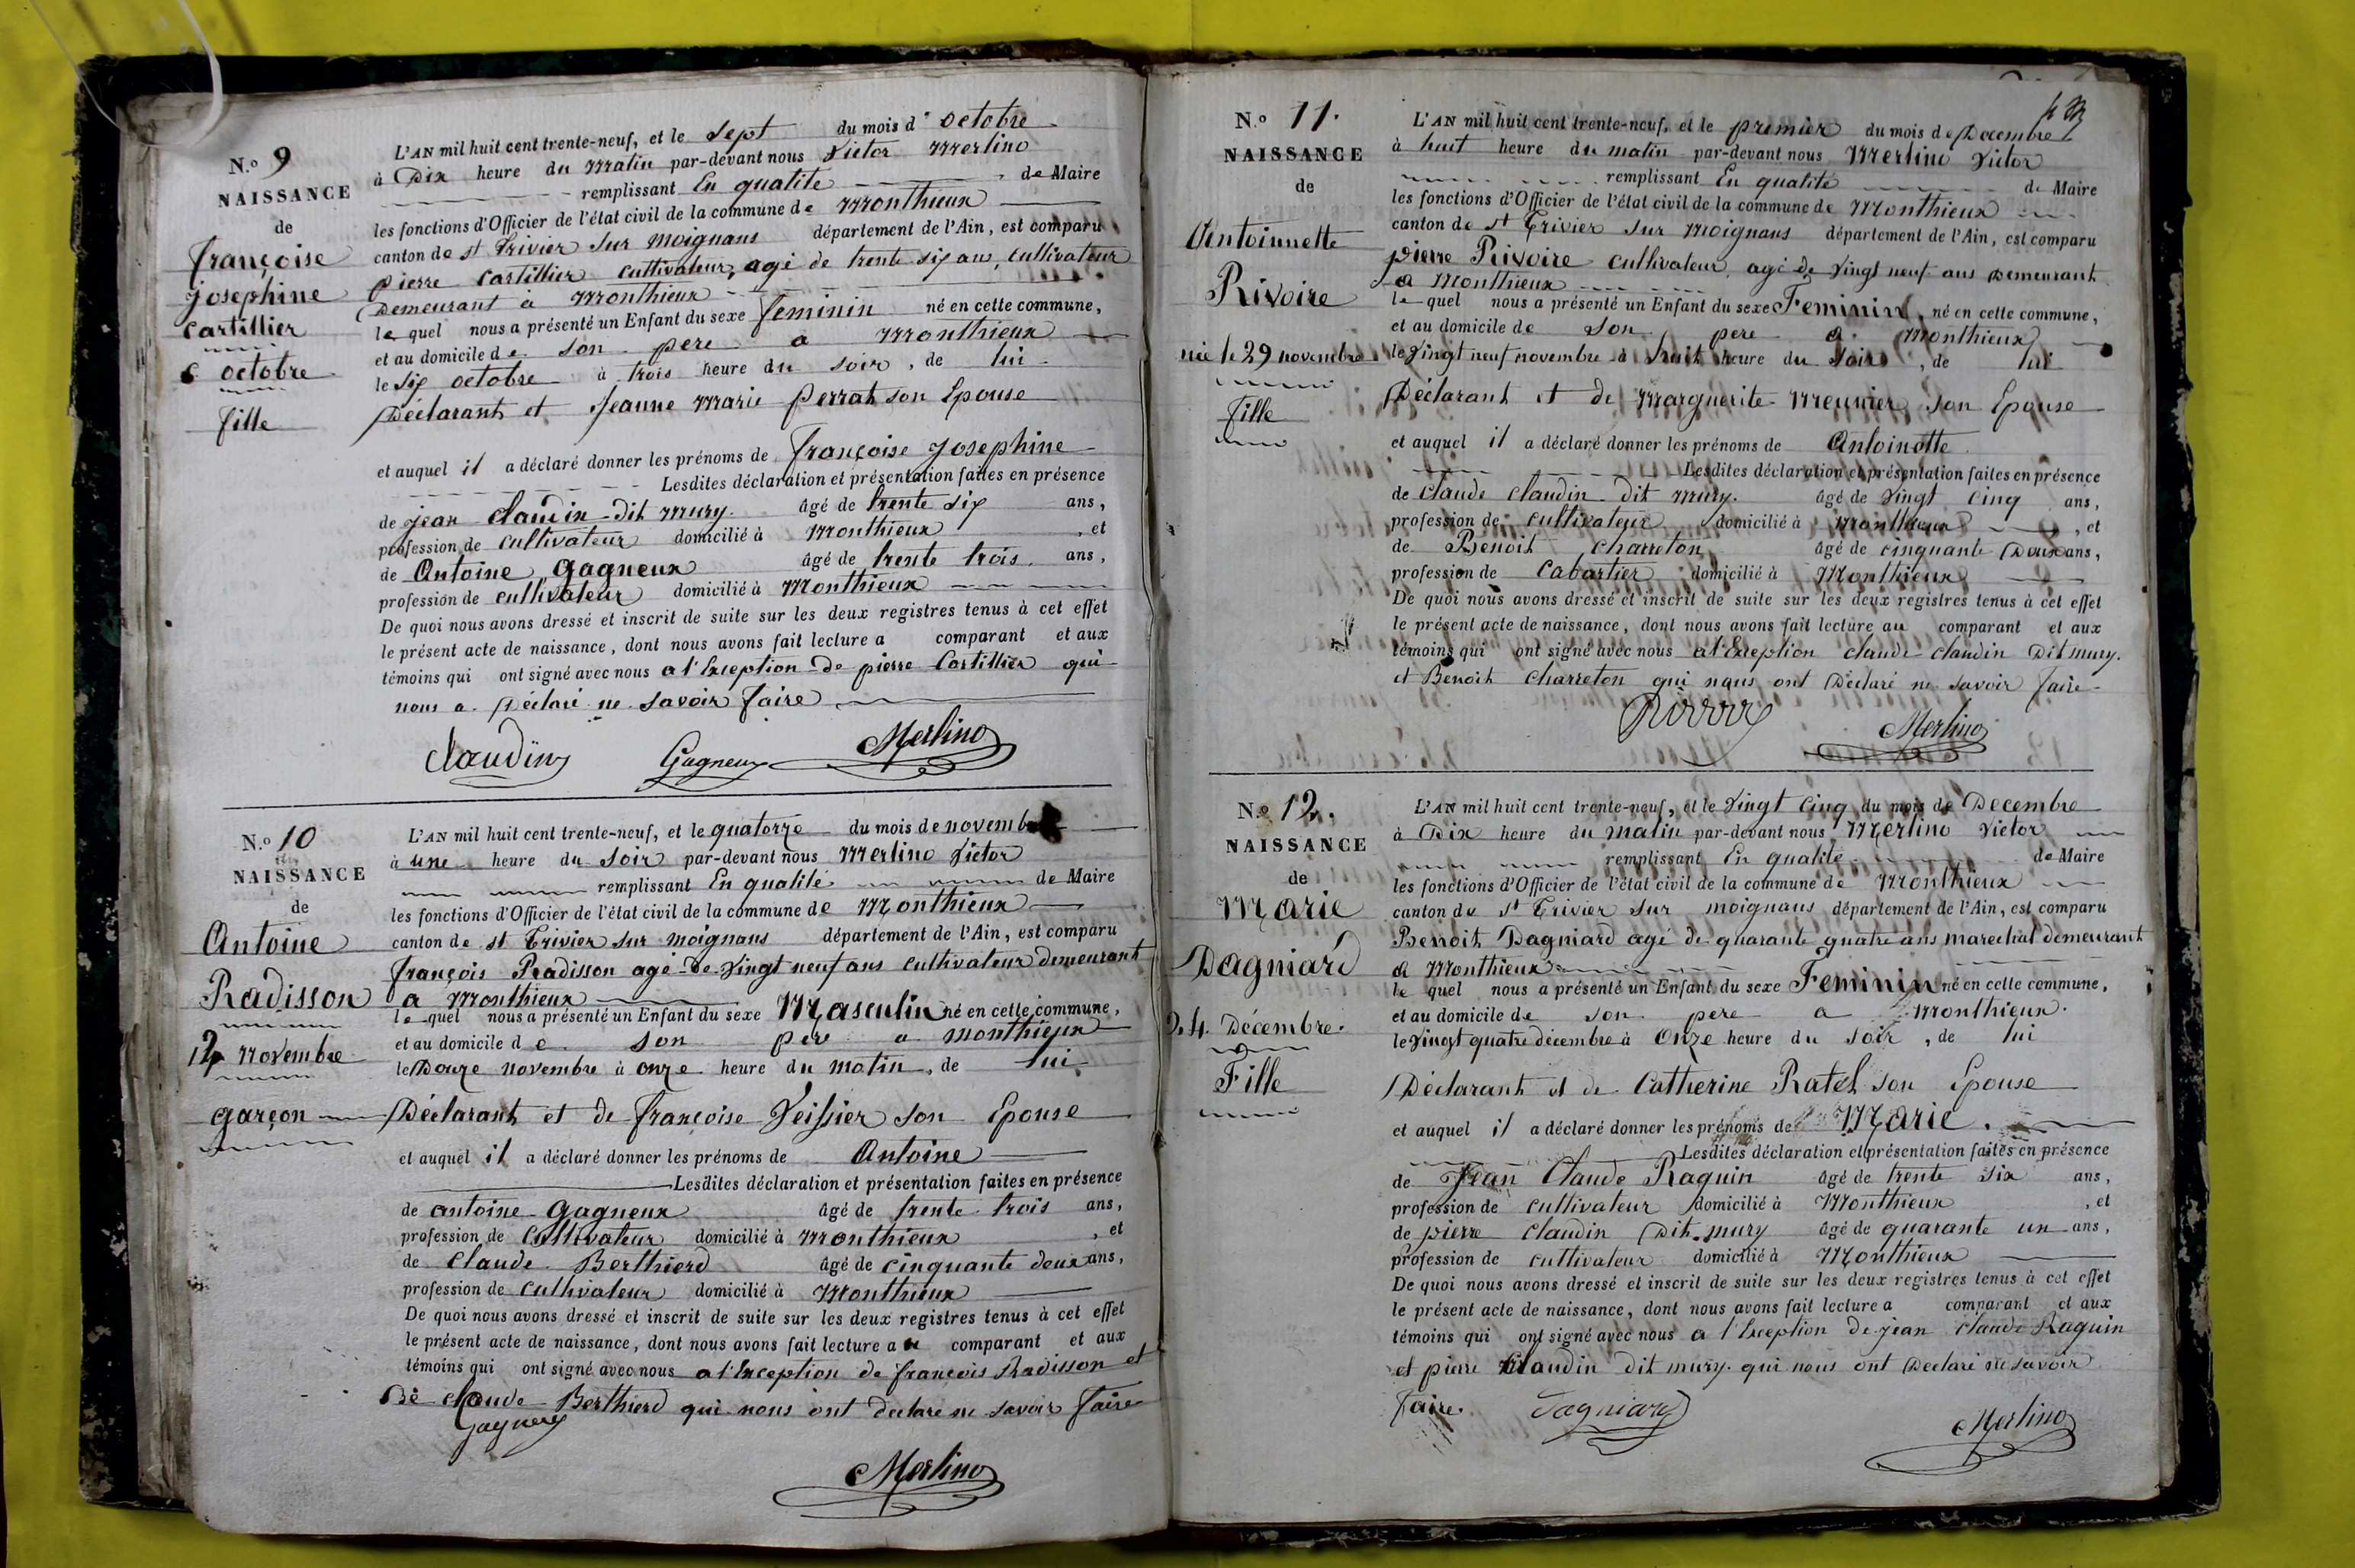 N.o 9
NAISSANCE
de
françoise
josephine
cartillier
6 octobre
fille
L'AN mil huit cent trente-neuf, et le sept du mois d' octobre
à Dix heure du Matin par-devant nous Victor Merlino
remplissant En qualité de Maire
les fonctions d'Officier de l'état civil de la commune de Monthieux
canton de st Trivier sur moignans département de l'Ain, est comparu
pierre Cartillier cultivateur, agé de trente six ans, cultivateur
Demeurant à Monthieux
le quel nous a présenté un Enfant du sexe feminin né en cette commune,
et au domicile de son pere a Monthieux
le six octobre à trois heure du soir, de lui
Déclarant et Jeanne Marie Perrat son Epouse
et auquel il a déclaré donner les prénoms de françoise Josephine
Lesdites déclaration et présentation faites en présence
de jean claudin dit mury. âgé de trente six ans,
profession de cultivateur domicilié à Monthieux, et
de Antoine Gagneux âgé de trente trois ans,
profession de cultivateur domicilié à Monthieux
De quoi nous avons dressé et inscrit de suite sur les deux registres tenus à cet effet
le présent acte de naissance, dont nous avons fait lecture a comparant et aux
témoins qui ont signé avec nous a l'Exception de pierre Cartillier qui
nous a Déclaré ne savoir faire
claudin Gagneux Merlino
N.o 10
NAISSANCE
de
Antoine
Radisson
12 Novembre
garçon
L'AN mil huit cent trente-neuf, et le quatorze du mois de novembre
à une heure du soir par-devant nous Merlino Victor
remplissant En qualité de Maire
les fonctions d'Officier de l'état civil de la commune de Monthieux
canton de st Trivier sur moignans département de l'Ain, est comparu
françois Radisson agé de vingt neuf ans cultivateur demeurant
a Monthieux
le quel nous a présenté un Enfant du sexe Masculin né en cette commune,
et au domicile de son pere a monthieux
le Douze novembre à onze heure du matin, de lui
Déclarant et de françoise Veissier son Epouse
et auquel il a déclaré donner les prénoms de Antoine
Lesdites déclaration et présentation faites en présence
de antoine gagneux âgé de trente trois ans,
profession de Cultivateur domicilié à Monthieux, et
de claude Berthierd âgé de cinquante deux ans,
profession de cultivateur domicilié à Monthieux
De quoi nous avons dressé et inscrit de suite sur les deux registres tenus à cet effet
le présent acte de naissance, dont nous avons fait lecture au comparant et aux
témoins qui ont signé avec nous a l'Exception de françois Radisson et
De claude Berthierd qui nous ont declare ne savoir faire
Gagneux
Merlino
N.o 11.
NAISSANCE
de
Antoinnette
Rivoire
née le 29 novembre
fille
L'AN mil huit cent trente-neuf, et le premier du mois de Decembre
à huit heure du matin par-devant nous Merlino Victor
remplissant En qualité de Maire
les fonctions d'Officier de l'état civil de la commune de Monthieux
canton de st Trivier sur moignans département de l'Ain, est comparu
pierre Rivoire cultivateur, agé de vingt neuf ans demeurant
a Monthieux
le quel nous a présenté un Enfant du sexe Feminin, né en cette commune,
et au domicile de son pere a Monthieux
le vingt neuf novembre à huit heure du soir, de lui
Déclarant et de Marguerite Meunier son Epouse
et auquel il a déclaré donner les prénoms de Antoinette
Lesdites déclaration et présentation faites en présence
de claude claudin dit mury. âgé de vingt cinq ans,
profession de cultivateur domicilié à Monthieux, et
de Benoit charreton âgé de cinquante Deux ans,
profession de Cabartier domicilié à Monthieux
De quoi nous avons dressé et inscrit de suite sur les deux registres tenus à cet effet
le présent acte de naissance, dont nous avons fait lecture au comparant et aux
témoins qui ont signé avec nous a l'Exception claude claudin Dit mury.
et Benoit charreton qui nous ont Déclaré ne savoir faire
Merlino
N.o 12.
NAISSANCE
de
Marie
Dagniard
24. Décembre.
Fille
L'AN mil huit cent trente-neuf, et le vingt cinq du mois de Decembre
à Dix heure du matin par-devant nous Merlino Victor
remplissant En qualité de Maire
les fonctions d'Officier de l'état civil de la commune de Monthieux
canton de st Trivier sur moignans département de l'Ain, est comparu
Benoit Dagniard agé de quarante quatre ans marechal demeurant
a Monthieux
le quel nous a présenté un Enfant du sexe Feminin né en cette commune,
et au domicile de son pere a Monthieux.
le vingt quatre décembre à Onze heure du soir, de lui
Déclarant et de Catherine Ratel son Epouse
et auquel il a déclaré donner les prénoms de Marie.
Lesdites déclaration et présentation faites en présence
de Jean Claude Raquin âgé de trente six ans,
profession de cultivateur domicilié à Monthieux, et
de pierre claudin Dit mury âgé de quarante un ans,
profession de cultivateur domicilié à Monthieux
De quoi nous avons dressé et inscrit de suite sur les deux registres tenus à cet effet
le présent acte de naissance, dont nous avons fait lecture a comparant et aux
témoins qui ont signé avec nous a l'Exception de jean claude Raquin
et pierre claudin dit mury. qui nous ont Declaré ne savoir
faire. Dagniard
Merlino